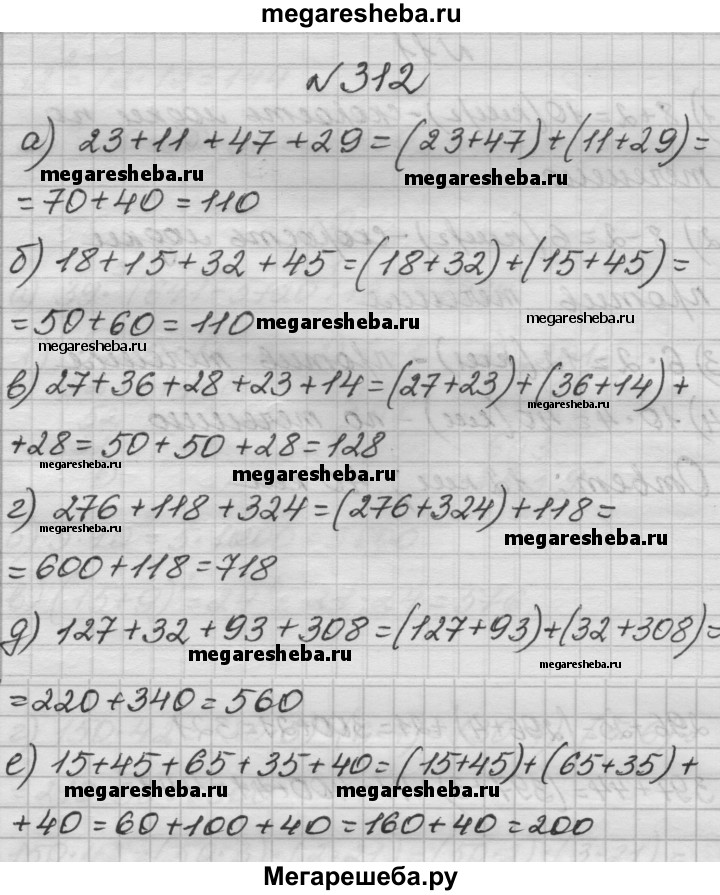 megaresheba.ru
№312
а) 23+11+47+29=(23+47)+(11+29)=
megaresheba.ru megaresheba.ru
=70+40=110
б) 18+15+32+45=(18+32)+(15+45)=
=50+60=110 megaresheba.ru megaresheba.ru
megaresheba.ru
в) 27+36+28+23+14=(27+23)+(36+14)+
megaresheba.ru
+28=50+50+28=128
megaresheba.ru megaresheba.ru
г) 276+118+324=(276+324)+118=
megaresheba.ru megaresheba.ru
=600+118=718
д) 127+32+93+308=(127+93)+(32+308)=
megaresheba.ru megaresheba.ru
=220+340=560
е) 15+45+65+35+40=(15+45)+(65+35)+
megaresheba.ru megaresheba.ru
+40=60+100+40=160+40=200
Мегарешеба.ру